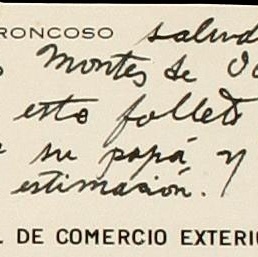 RONCOSO salud
Montes de O
esto follet
su papá y
estimación.
L DE COMERCIO EXTERI